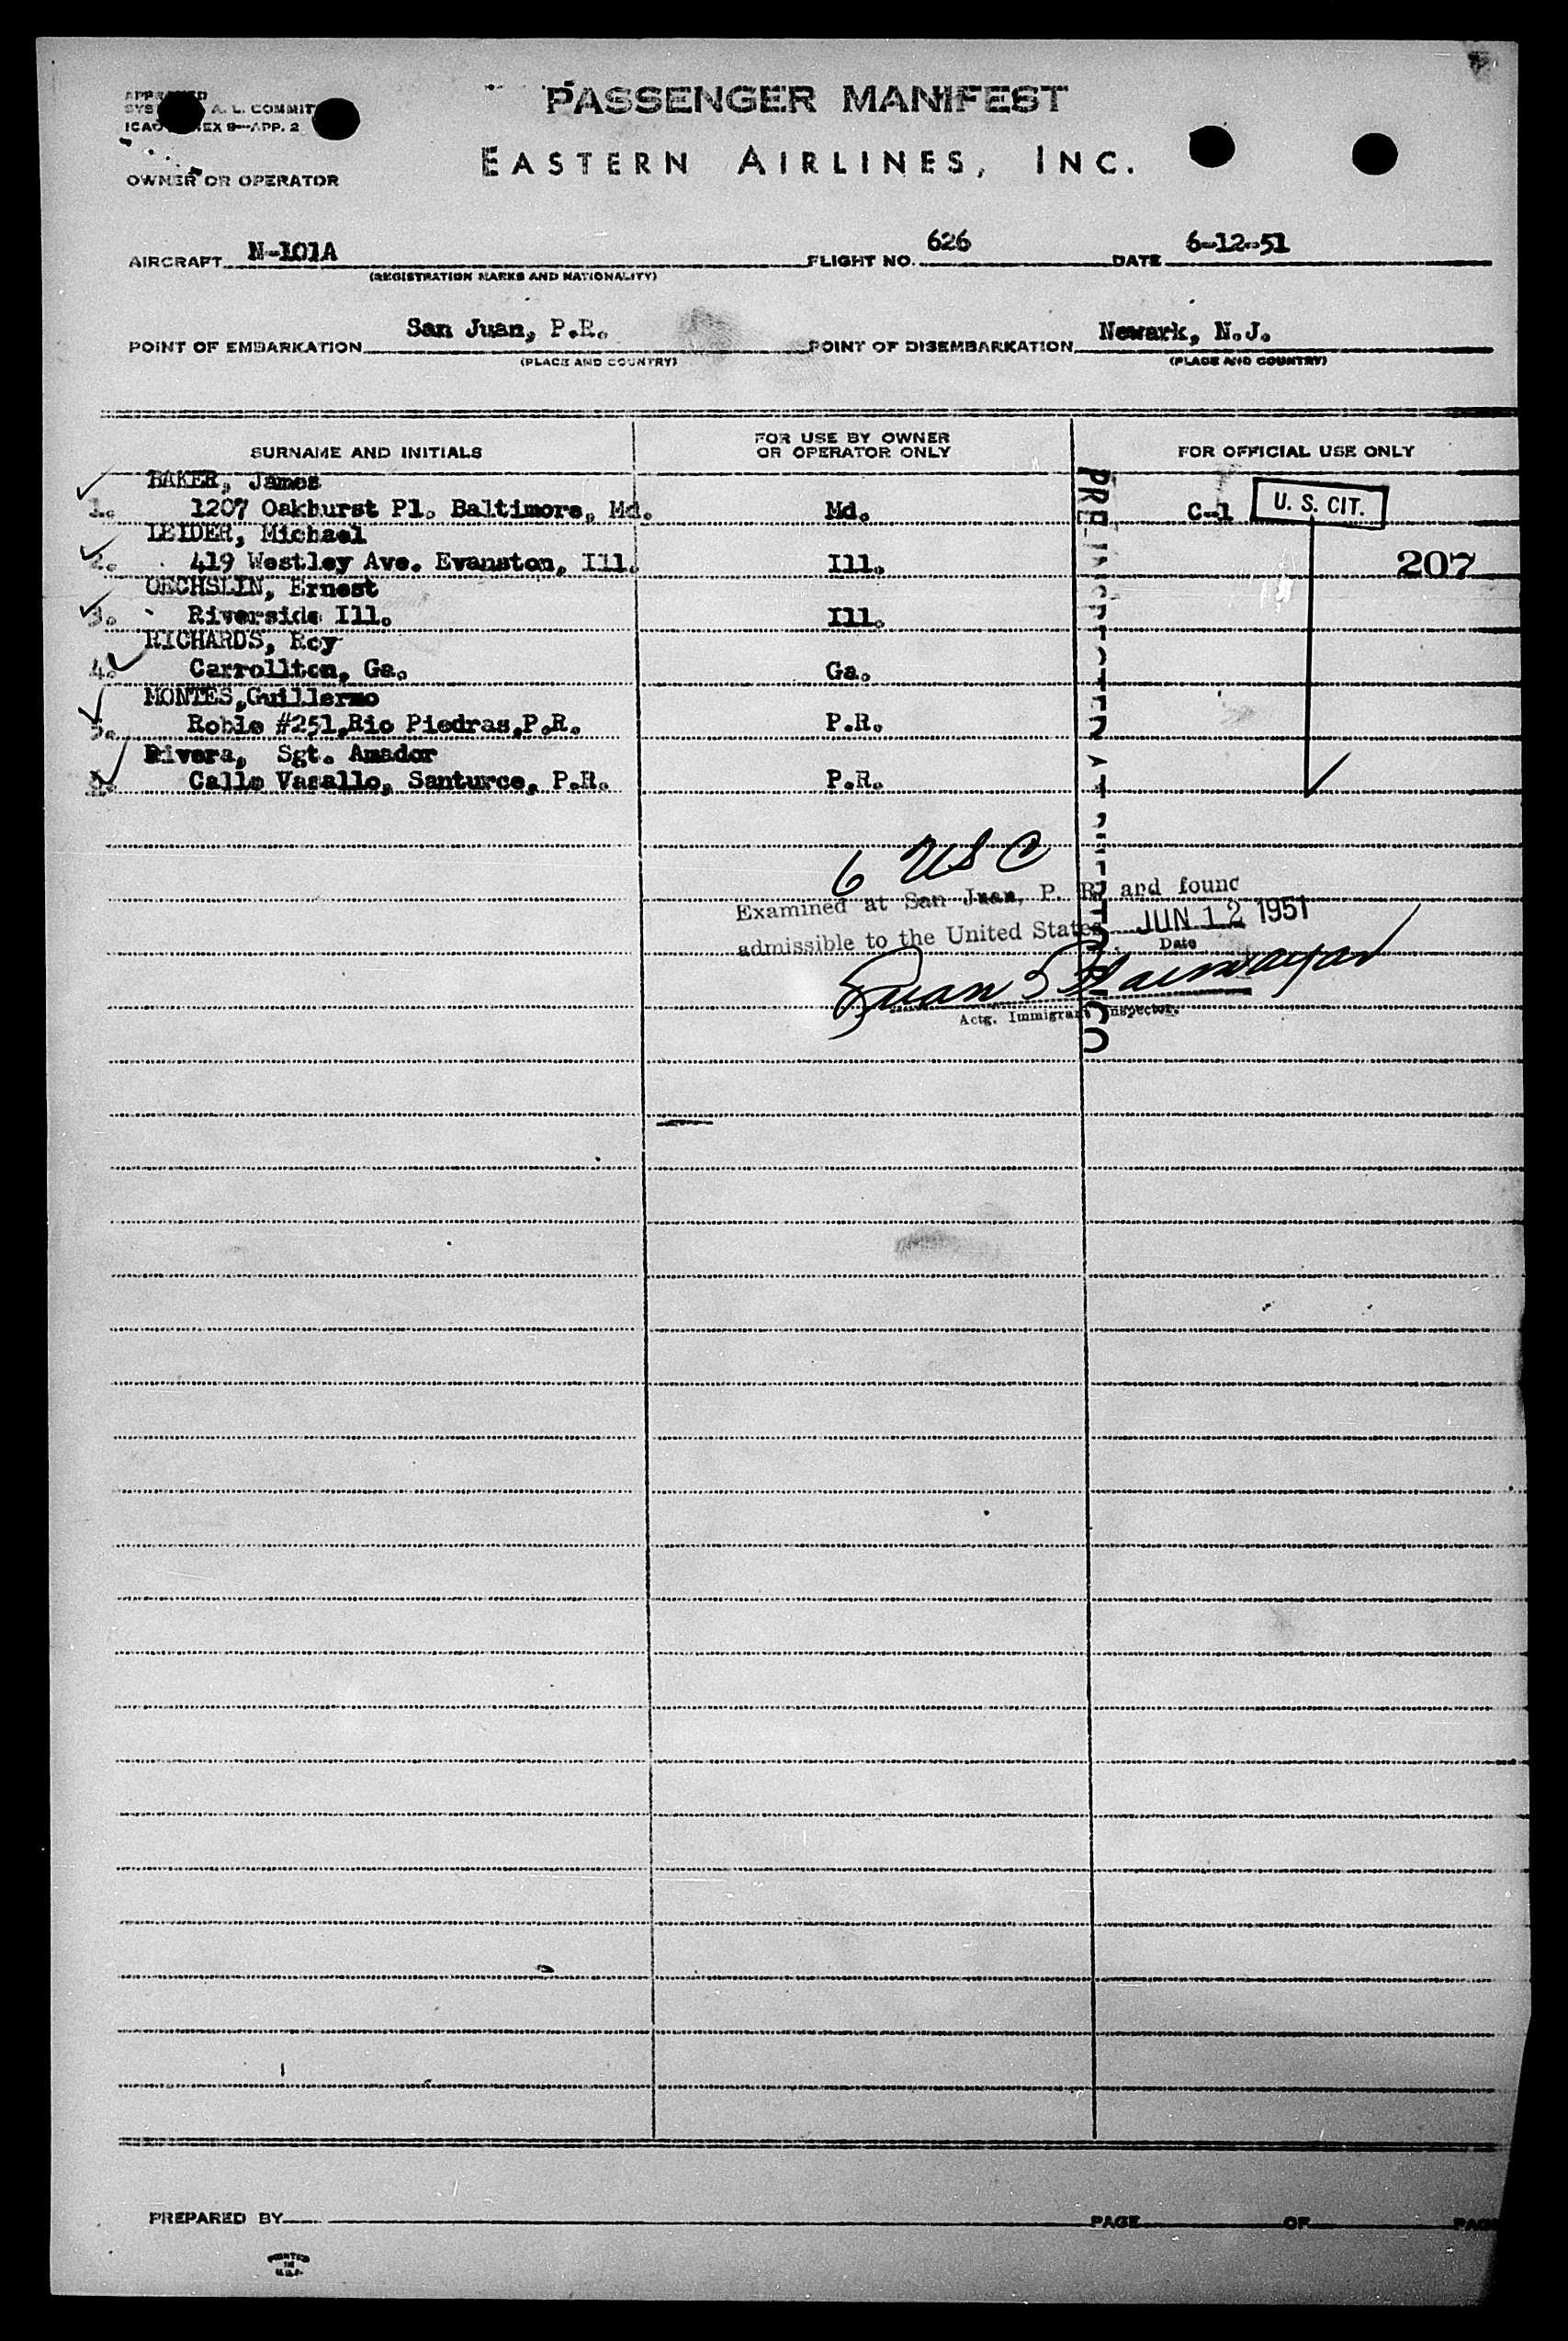 PASSENGER MANIFEST
EASTERN AIRLINES, INC.
A. L. COMMIT
APP. 2
OWNER OR OPERATOR
AIRCRAFT N-101A FLIGHT NO. 626 DATE 6-12-51
(REGISTRATION MARKS AND NATIONALITY)
POINT OF EMBARKATION San Juan, P.R. POINT OF DISEMBARKATION Newark, N.J.
(PLACE AND COUNTRY) (PLACE AND COUNTRY)
SURNAME AND INITIALS FOR USE BY OWNER OR OPERATOR ONLY FOR OFFICIAL USE ONLY
BAKER, James
1. 1207 Oakhurst Pl. Baltimore, Md. Md. C-1 U. S. CIT.
LEIDER, Michael
2. 419 Westley Ave. Evanston, Ill. Ill. 207
OECHSLIN, Ernest
3. Riverside Ill. Ill.
RICHARDS, Roy
4. Carrollton, Ga. Ga.
MONTES,Guillermo
5. Roble #251,Rio Piedras,P.R. P.R.
Rivera, Sgt. Amador
Calle Vasallo, Santurce, P.R. P.R.
6 USC
Examined at San Juan, P. R. and found
admissible to the United States, JUN 12 1951
Date
Juan
Actg. Immigrant Inspector.
PREPARED BY PAGE OF
PRINTED
IN
U.S.A.